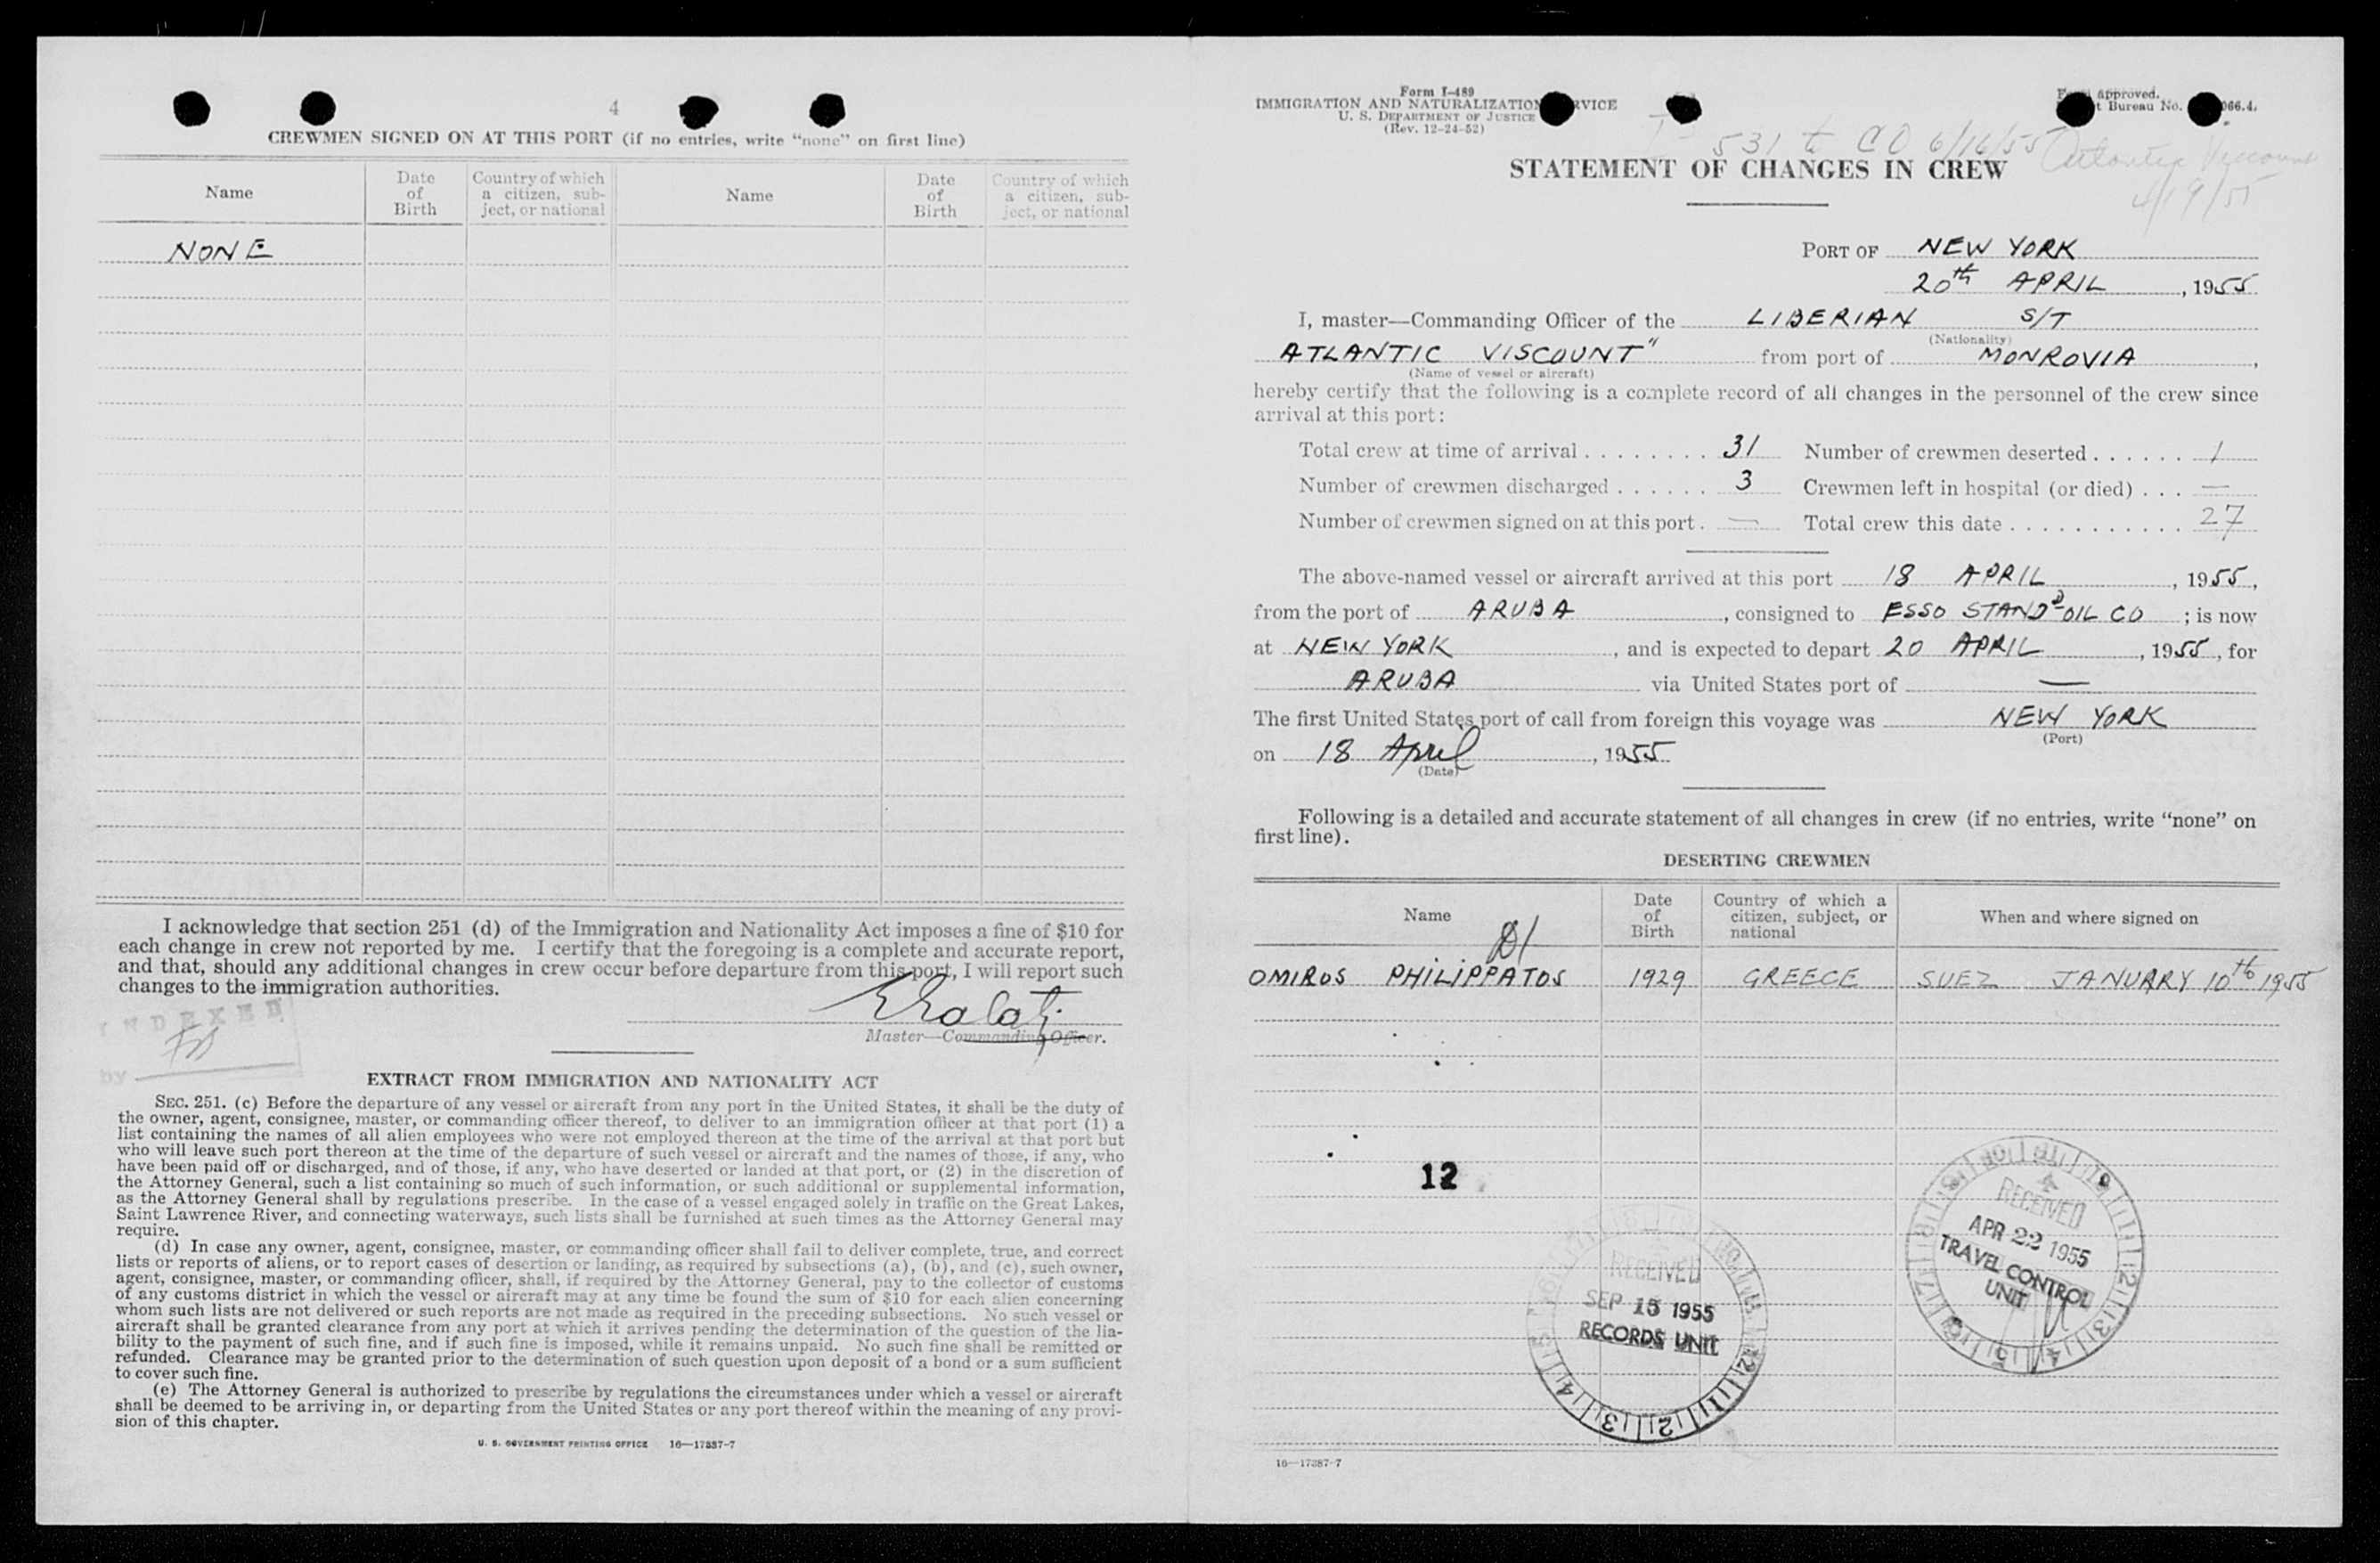 4
CREWMEN SIGNED ON AT THIS PORT (if no entries, write "none" on first line)
Name
Date of Birth
Country of which a citizen, subject, or national
Name
Date of Birth
Country of which a citizen, subject, or national
NONE
I acknowledge that section 251 (d) of the Immigration and Nationality Act imposes a fine of $10 for
each change in crew not reported by me. I certify that the foregoing is a complete and accurate report,
and that, should any additional changes in crew occur before departure from this port, I will report such
changes to the immigration authorities.
INDEXED
by
Master—Commanding Officer.
EXTRACT FROM IMMIGRATION AND NATIONALITY ACT
SEC. 251. (c) Before the departure of any vessel or aircraft from any port in the United States, it shall be the duty of
the owner, agent, consignee, master, or commanding officer thereof, to deliver to an immigration officer at that port (1) a
list containing the names of all alien employees who were not employed thereon at the time of the arrival at that port but
who will leave such port thereon at the time of the departure of such vessel or aircraft and the names of those, if any, who
have been paid off or discharged, and of those, if any, who have deserted or landed at that port, or (2) in the discretion of
the Attorney General, such a list containing so much of such information, or such additional or supplemental information,
as the Attorney General shall by regulations prescribe. In the case of a vessel engaged solely in traffic on the Great Lakes,
Saint Lawrence River, and connecting waterways, such lists shall be furnished at such times as the Attorney General may
require.
(d) In case any owner, agent, consignee, master, or commanding officer shall fail to deliver complete, true, and correct
lists or reports of aliens, or to report cases of desertion or landing, as required by subsections (a), (b), and (c), such owner,
agent, consignee, master, or commanding officer, shall, if required by the Attorney General, pay to the collector of customs
of any customs district in which the vessel or aircraft may at any time be found the sum of $10 for each alien concerning
whom such lists are not delivered or such reports are not made as required in the preceding subsections. No such vessel or
aircraft shall be granted clearance from any port at which it arrives pending the determination of the question of the lia-
bility to the payment of such fine, and if such fine is imposed, while it remains unpaid. No such fine shall be remitted or
refunded. Clearance may be granted prior to the determination of such question upon deposit of a bond or a sum sufficient
to cover such fine.
(e) The Attorney General is authorized to prescribe by regulations the circumstances under which a vessel or aircraft
shall be deemed to be arriving in, or departing from the United States or any port thereof within the meaning of any provi-
sion of this chapter.
U. S. GOVERNMENT PRINTING OFFICE 16—17387-7
Form I-489
IMMIGRATION AND NATURALIZATION
U. S. DEPARTMENT OF JUSTICE
(Rev. 12-24-52)
approved.
Bureau No. 066.4.
531 to CO 6/16/55
Atlantic Viscount
4/19/55
STATEMENT OF CHANGES IN CREW
PORT OF NEW YORK
20th APRIL, 1955
I, master—Commanding Officer of the LIBERIAN S/T
(Nationality)
ATLANTIC VISCOUNT" from port of MONROVIA,
(Name of vessel or aircraft)
hereby certify that the following is a complete record of all changes in the personnel of the crew since
arrival at this port:
Total crew at time of arrival . . . . . . . . 31 Number of crewmen deserted . . . . . . 1
Number of crewmen discharged . . . . . . 3 Crewmen left in hospital (or died) . . . —
Number of crewmen signed on at this port . — Total crew this date . . . . . . . . . . . . 27
The above-named vessel or aircraft arrived at this port 18 APRIL, 1955,
from the port of ARUBA, consigned to ESSO STANDD OIL CO ; is now
at NEW YORK, and is expected to depart 20 APRIL, 1955, for
ARUBA via United States port of —
The first United States port of call from foreign this voyage was NEW YORK
(Port)
on 18 April, 1955
(Date)
Following is a detailed and accurate statement of all changes in crew (if no entries, write "none" on
first line).
DESERTING CREWMEN
Name
Date of Birth
Country of which a citizen, subject, or national
When and where signed on
OMIROS PHILIPPATOS 1929 GREECE SUEZ JANUARY 10th 1955
12
RECEIVED
SEP 15 1955
RECORDS UNIT
RECEIVED
APR 22 1955
TRAVEL CONTROL
UNIT
16—17387-7